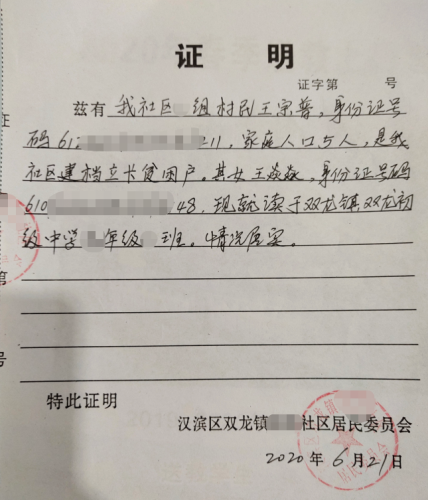 证 明
证字第 号
兹有 我社区 组村民王宗普,身份证号
码61 211,家庭人口5人,是我
社区建档立卡贫困户。其女王焱焱,身份证号码
610 48,现就读于双龙镇双龙初
级中学 年级 班。情况属实。
特此证明
汉滨区双龙镇 社区居民委员会
2020年6月21日
证
第
号